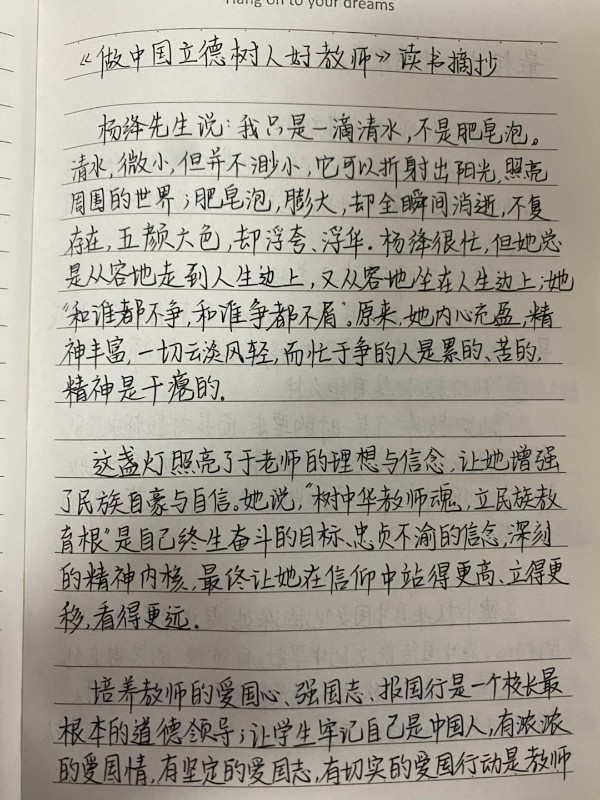 Hang on to your dreams
《做中国立德树人好教师》读书摘抄
杨绛先生说：我只是一滴清水，不是肥皂泡。
清水，微小，但并不渺小，它可以折射出阳光，照亮
周围的世界；肥皂泡，膨大，却全瞬间消逝，不复
存在，五颜大色，却浮夸、浮华．杨绛很忙，但她总
是从容地走到人生边上，又从容地坐在人生边上；她
“和谁都不争，和谁争都不屑”。原来，她内心充盈，精
神丰富，一切云淡风轻，而忙于争的人是累的、苦的，
精神是干瘪的．
这盏灯照亮了于老师的理想与信念，让她增强
了民族自豪与自信。她说，“树中华教师魂，立民族教
育根”是自己终生奋斗的目标、忠贞不渝的信念，深刻
的精神内核，最终让她在信仰中站得更高、立得更
移，看得更远．
培养教师的爱国心、强国志、报国行是一个校长最
根本的道德领导；让学生牢记自己是中国人，有浓浓
的爱国情，有坚定的爱国志，有切实的爱国行动是教师